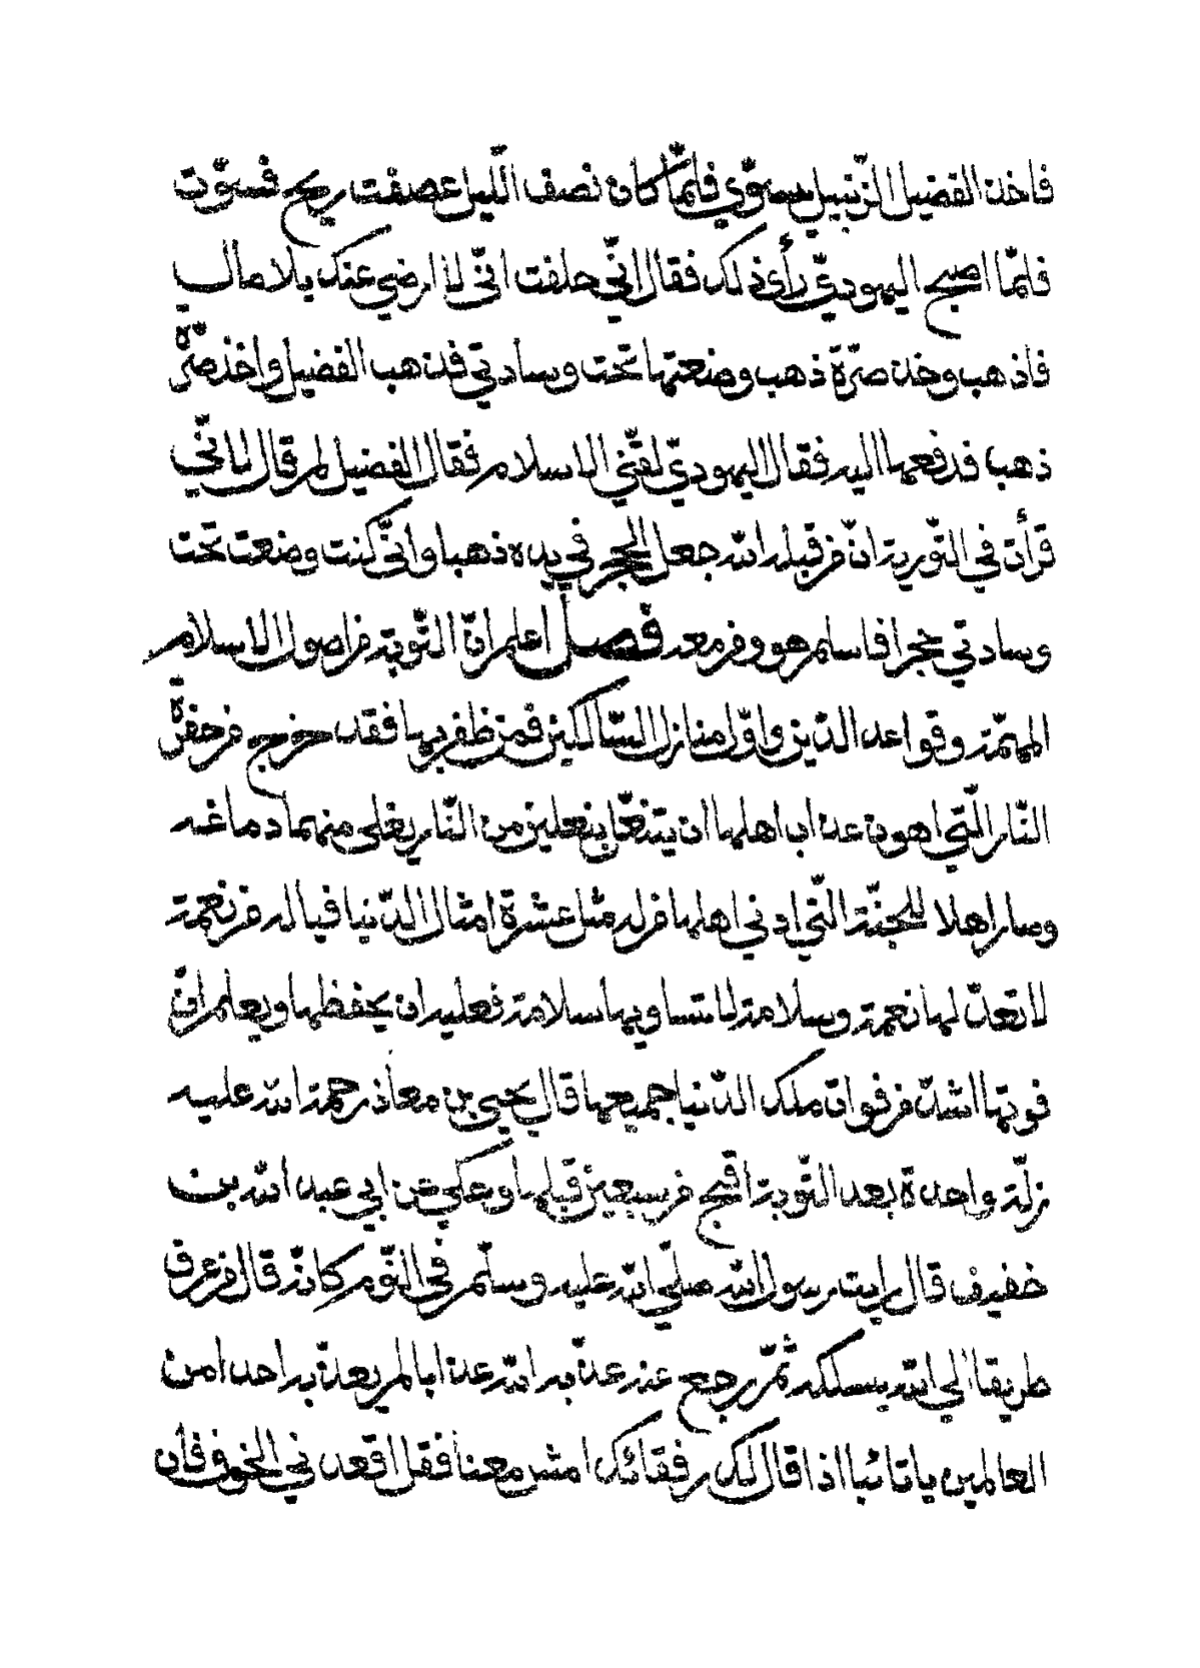 فاخذ الفضيل الزنبيل يسوّي فلمّا كان نصف اللّيل عصفت ريح فسوّت
فلمّا اصبح اليهوديّ رأى ذلك فقال انّي حلفت انّي لا ارضي عنك بلا مال
فاذهب وخذ صرّة ذهب وضعتها تحت وسادتي فذهب الفضيل واخذ صرّة
ذهب فدفعها اليه فقال اليهوديّ لقّني الاسلام فقال الفضيل لم قال لانّي
قرأت في التّورية انّ من قبله الله جعل الحجر في يده ذهبا وانّي كنت وضعت تحت
وسادتي حجرا فاسلم هو ومن معه فصل اعلم انّ التّوبة من اصول الاسلام
المهمّة وقواعد الدّين واوّل منازل السّالكين فمن ظفر بها فقد خرج من حفرة
النّار الّتي اهون عذاب اهلها ان يتنعّل بنعلين من النّار يغلى منهما دماغه
وصار اهلا للجنّة الّتي ادني اهلها من له مثل عشرة امثال الدّنيا فيا له من نعمة
لا تعدّ لها نعمة وسلامة لا تساويها سلامة فعليه ان يحفظها ويعلم انّ
فوتها اشدّ من فوات ملك الدّنيا جميعها قال يحيى بن معاذ رحمة الله عليه
زلّة واحدة بعد التّوبة اقبح من سبعين قبلها وحكي عن ابي عبد الله بن
خفيف قال رايت رسول الله صلّي الله عليه وسلّم في النّوم كانّه قال من عرف
طريقا الي الله يسلكه ثمّ رجع عنه عذّبه الله عذابا لم يعذّبه احدا من
العالمين يا تائبا اذا قال لك رفقائك امش معنا فقل اقعدني الخوف فان